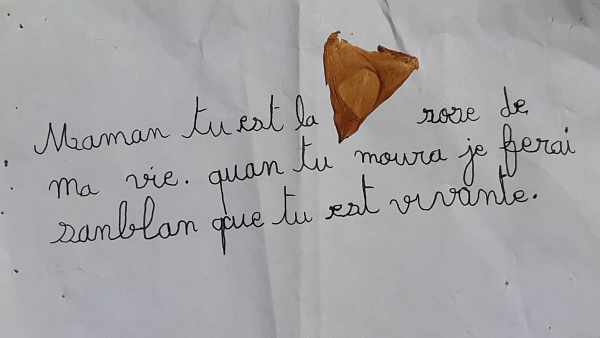 Maman tu est la rose de
ma vie. quan tu moura je ferai
sanblan que tu est vivante.